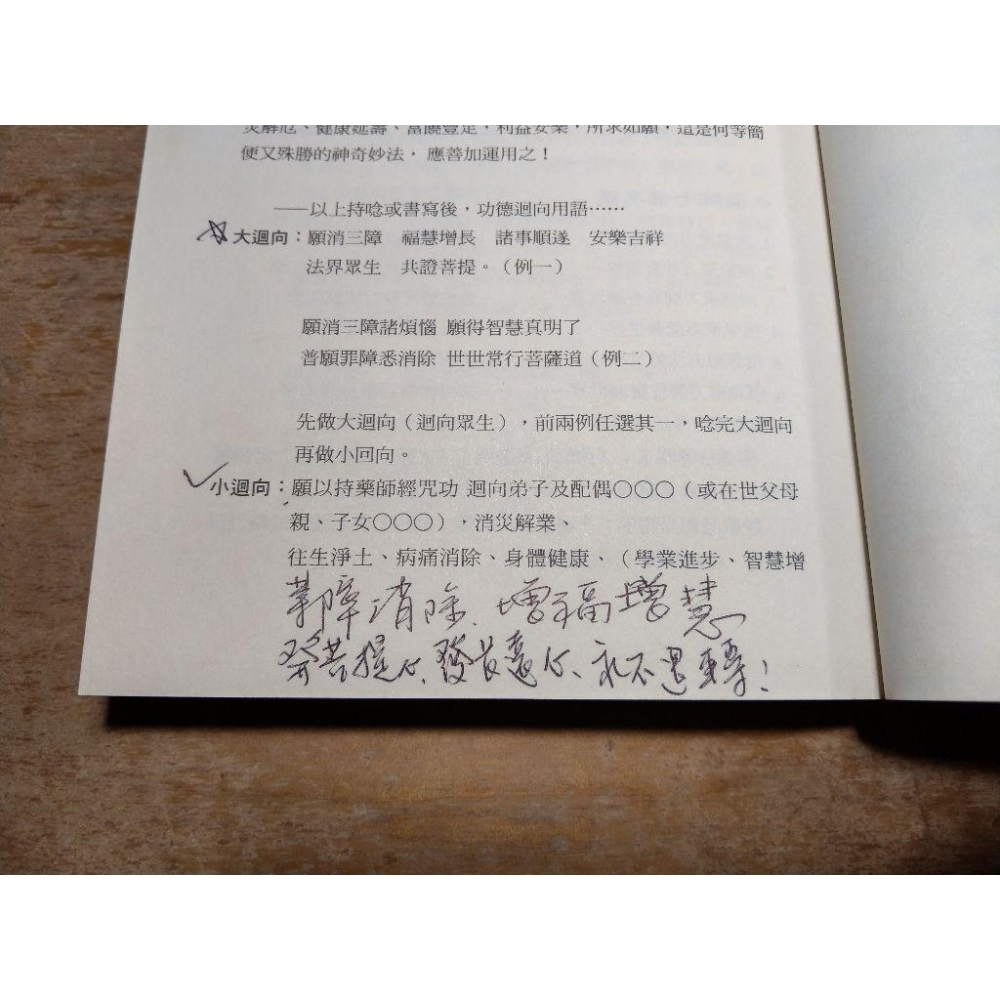 災解厄、健康延壽、富饒豐足，利益安樂，所求如願，這是何等簡
便又殊勝的神奇妙法，應善加運用之！
——以上持唸或書寫後，功德迴向用語……
☆大迴向：願消三障　福慧增長　諸事順遂　安樂吉祥
法界眾生　共證菩提。（例一）
願消三障諸煩惱 願得智慧真明了
普願罪障悉消除 世世常行菩薩道（例二）
先做大迴向（迴向眾生），前兩例任選其一，唸完大迴向
再做小回向。
✓小迴向：願以持藥師經咒功 迴向弟子及配偶〇〇〇（或在世父母
親、子女〇〇〇），消災解業、
往生淨土、病痛消除、身體健康、（學業進步、智慧增
業障消除、增福增慧
發菩提心、發長遠心、永不退轉！